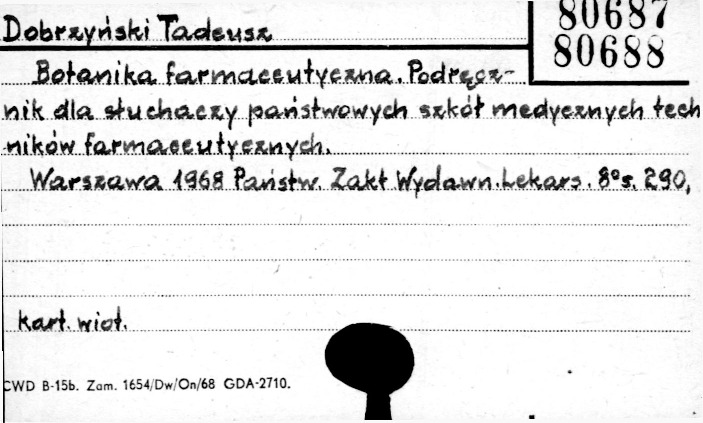 80687
80688
Dobrzyński Tadeusz
Botanika farmaceutyczna. Podręcz-
nik dla słuchaczy państwowych szkół medycznych tech
ników farmaceutycznych.
Warszawa 1968 Państw. Zakt Wydawn. Lekars. 8° s. 290,
kart. wiot.
CWD B-15b. Zam. 1654/Dw/On/68 GDA-2710.